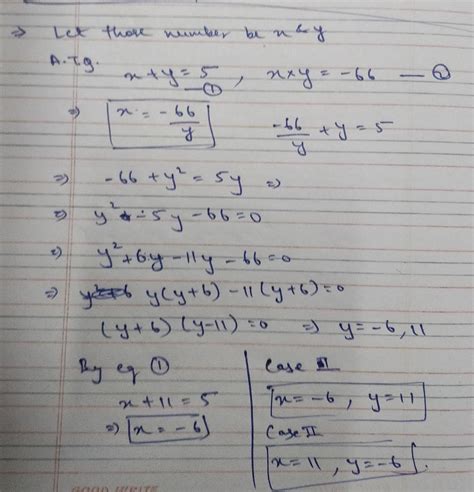 ⇒ Let those number be x & y
A.T.g.
x + y = 5 , x × y = -66 — ②
①
⇒ x = -66/y -66/y + y = 5
⇒ -66 + y² = 5y ⇒
⇒ y² - 5y - 66 = 0
⇒ y² + 6y - 11y - 66 = 0
⇒ y(y+6) - 11(y+6) = 0
(y+6) (y-11) = 0 ⇒ y = -6, 11
By eq ①
x + 11 = 5
⇒ x = -6
Case I
x = -6 , y = 11
Case II
x = 11 , y = -6